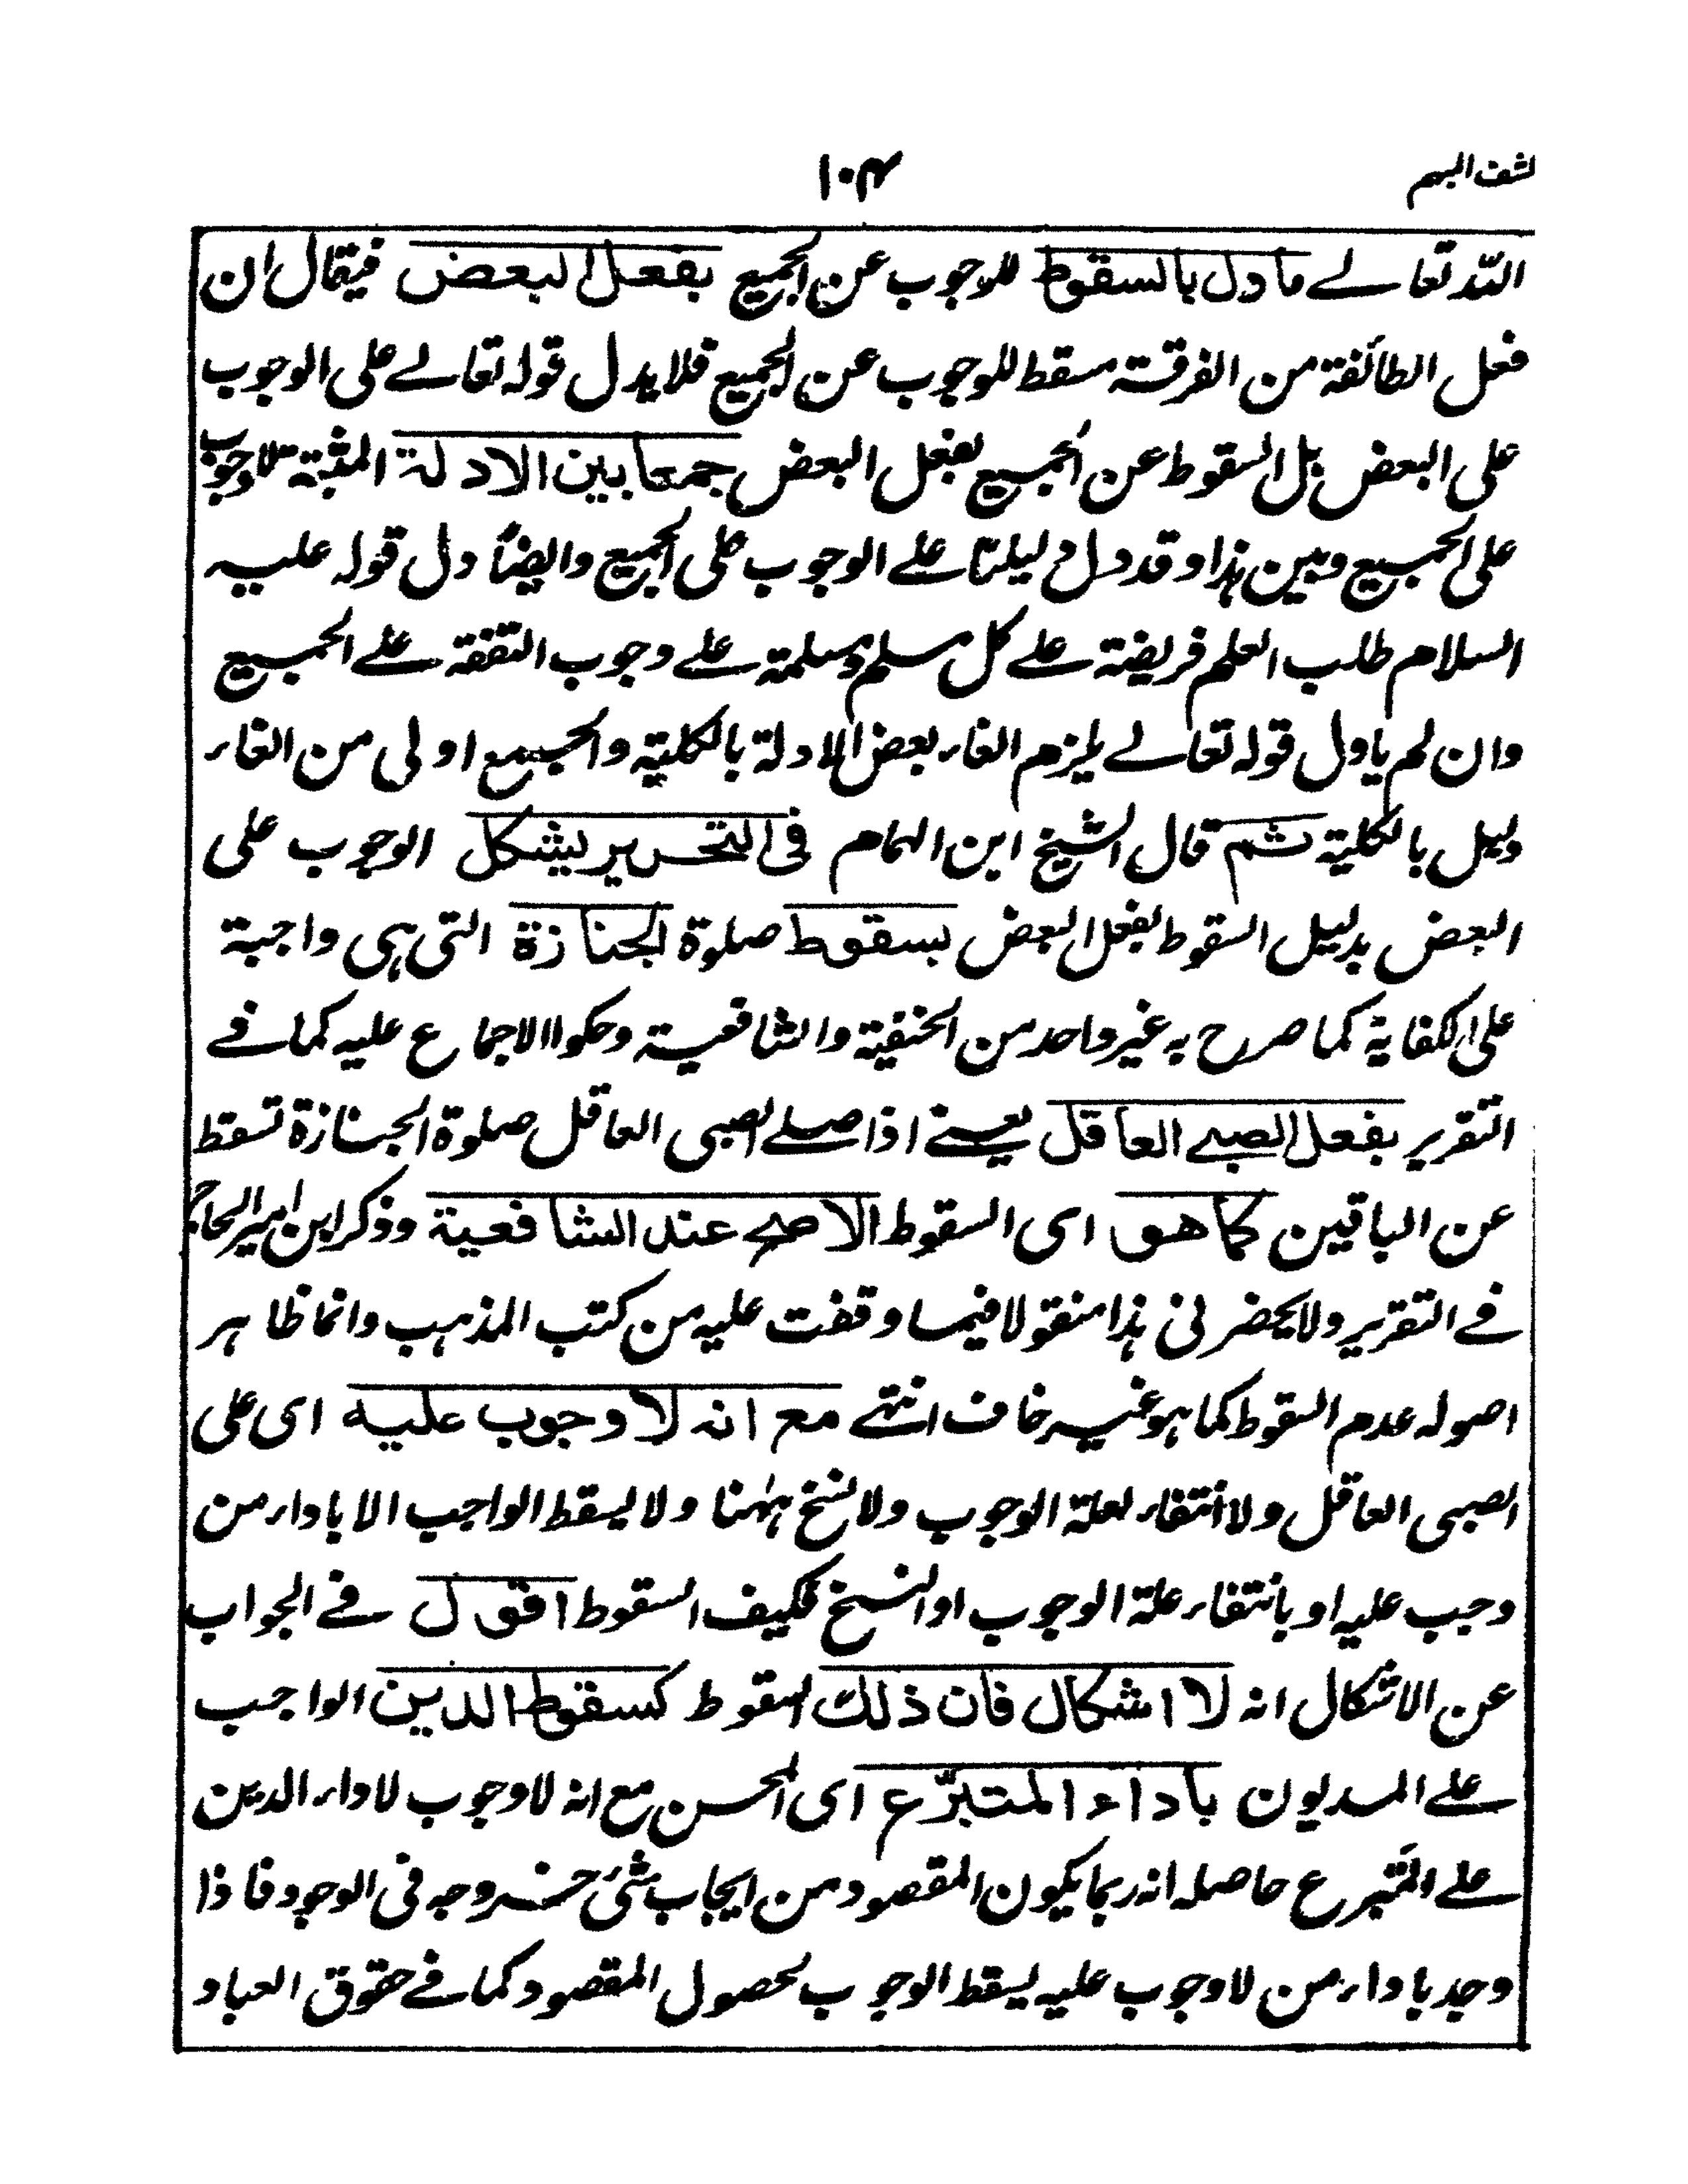 كشف المبهم
١٠٤
اللّٰه تعالے ماول بالسقوط للوجوب عن الجميع بفعل البعض فيقال ان
فعل الطائفة من الفرقة مسقط للوجوب عن الجميع فلا يدل قوله تعالے على الوجوب
على البعض بل السقوط عن الجميع بفعل البعض جمعا بين الادلة المثبتة للوجوب
على الجميع وبين هذا وقد دل دليلنا علے الوجوب على الجميع وايضًا دل قوله عليه
السلام طلب العلم فريضة علے كل مسلم ومسلمة علے وجوب التفقه علے الجميع
وان لم ياول قوله تعالے يلزم الغاء بعض الادلة بالكلية والجميع اولى من الغاء
دليل بالكلية ثم قال الشيخ ابن الهمام فى التحرير يشكل الوجوب على
البعض بدليل السقوط بفعل البعض بسقوط صلوة الجنازة التى هى واجبة
على الكفاية كما صرح به غير واحد من الحنفية والشافعية وحكوا الاجماع عليه كما فے
التقرير بفعل الصبے العاقل يعنے اذا صلے الصبى العاقل صلوة الجنازة تسقط
عن الباقين كما هو اى السقوط الاصح عند الشافعية وذكر ابن امير الحاج
فے التقرير ولا يحضرنى هذا منقولا فيما وقفت عليه من كتب المذهب وانما ظاهر
اصوله عدم السقوط كما هو غير خاف انتهے مع انه لا وجوب عليه اى على
الصبى العاقل ولا انتفاء لعلة الوجوب ولا نسخ ههنا ولا يسقط الواجب الا باداء من
وجب عليه او بانتفاء علة الوجوب او النسخ فكيف السقوط اقول فے الجواب
عن الاشكال انه لا اشكال فان ذلك السقوط كسقوط الدين الواجب
علے المديون باداء المتبرّع اى المحسن مع انه لا وجوب لاداء الدين
علے المتبرع حاصله انه ربما يكون المقصود من ايجاب شئ خروجه فى الوجود فاذا
وجد باداء من لا وجوب عليه يسقط الوجوب لحصول المقصود كما فے حقوق العباد